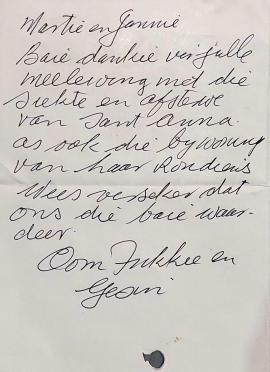 Martie en Jannie
Baie dankie vir julle
meelewing met die
siekte en afsterwe
van Sant Anna.
as ook die bywoning
van haar Roudiens
Wees verseker dat
ons die baie waar-
deer.
Oom Fukkie en
Gesin